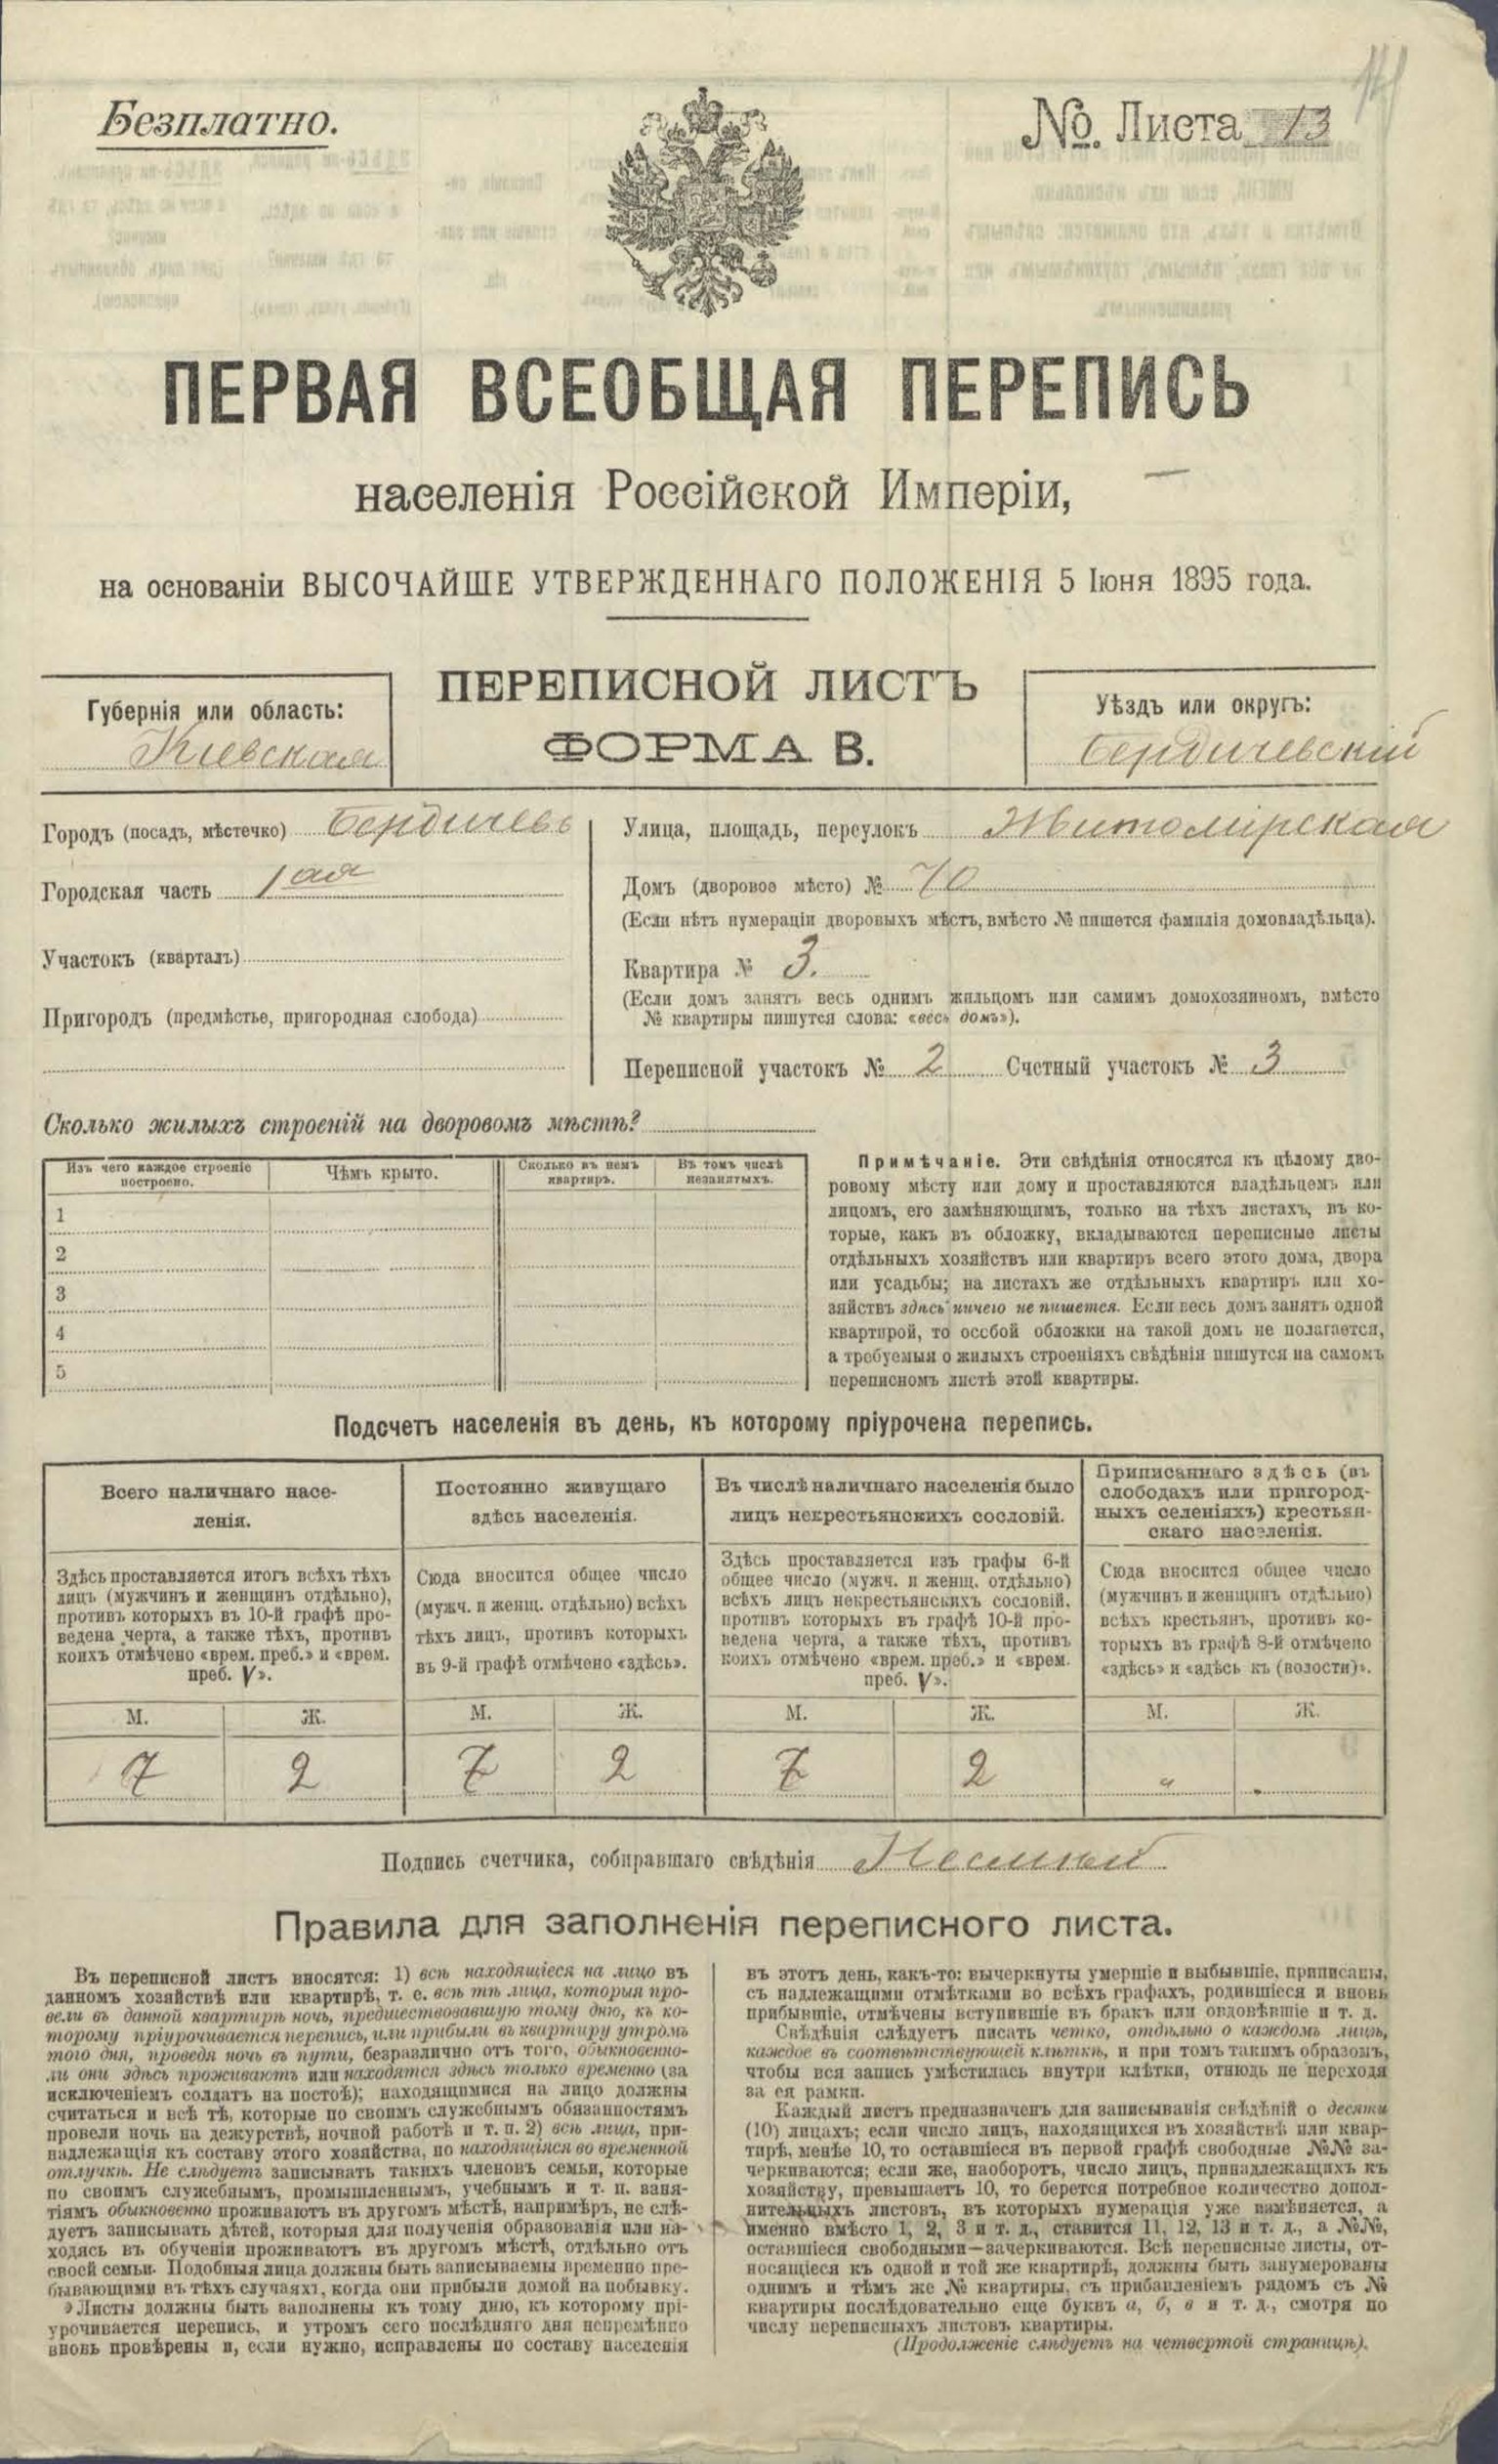 Безплатно.
№. Листа 13
ПЕРВАЯ ВСЕОБЩАЯ ПЕРЕПИСЬ
населенія Россійской Имперіи,
на основаніи ВЫСОЧАЙШЕ УТВЕРЖДЕННАГО ПОЛОЖЕНІЯ 5 Іюня 1895 года.
ПЕРЕПИСНОЙ ЛИСТЪ
ФОРМА В.
Губернія или область:
Кіевская
Уѣздъ или округъ:
Бердичевскій
Городъ (посадъ, мѣстечко) Бердичевъ
Городская часть 1ая
Участокъ (кварталъ)
Пригородъ (предмѣстье, пригородная слобода)
Улица, площадь, переулокъ Житомірская
Домъ (дворовое мѣсто) № 70
(Если нѣтъ нумераціи дворовыхъ мѣстъ, вмѣсто № пишется фамилія домовладѣльца).
Квартира № 3.
(Если домъ занятъ весь однимъ жильцомъ или самимъ домохозяиномъ, вмѣсто
№ квартиры пишутся слова: «весь домъ»).
Переписной участокъ № 2 Счетный участокъ № 3
Сколько жилыхъ строеній на дворовомъ мѣстѣ?
Изъ чего каждое строеніе
построено.
Чѣмъ крыто.
Сколько въ немъ
квартиръ.
Въ томъ числѣ
незанятыхъ.
1
2
3
4
5
Примѣчаніе. Эти свѣдѣнія относятся къ цѣлому дво-
ровому мѣсту или дому и проставляются владѣльцемъ или
лицомъ, его замѣняющимъ, только на тѣхъ листахъ, въ ко-
торые, какъ въ обложку, вкладываются переписные листы
отдѣльныхъ хозяйствъ или квартиръ всего этого дома, двора
или усадьбы; на листахъ же отдѣльныхъ квартиръ или хо-
зяйствъ здѣсь ничего не пишется. Если весь домъ занятъ одной
квартирой, то особой обложки на такой домъ не полагается,
а требуемыя о жилыхъ строеніяхъ свѣдѣнія пишутся на самомъ
переписномъ листѣ этой квартиры.
Подсчетъ населенія въ день, къ которому пріурочена перепись.
Всего наличнаго насе-
ленія.
Здѣсь проставляется итогъ всѣхъ тѣхъ
лицъ (мужчинъ и женщинъ отдѣльно),
противъ которыхъ въ 10-й графѣ про-
ведена черта, а также тѣхъ, противъ
коихъ отмѣчено «врем. преб.» и «врем.
преб. V».
Постоянно живущаго
здѣсь населенія.
Сюда вносится общее число
(мужч. и женщ. отдѣльно) всѣхъ
тѣхъ лицъ, противъ которыхъ
въ 9-й графѣ отмѣчено «здѣсь».
Въ числѣ наличнаго населенія было
лицъ некрестьянскихъ сословій.
Здѣсь проставляется изъ графы 6-й
общее число (мужч. и женщ. отдѣльно)
всѣхъ лицъ некрестьянскихъ сословій.
противъ которыхъ въ графѣ 10-й про-
ведена черта, а также тѣхъ, противъ
коихъ отмѣчено «врем. преб.» и «врем.
преб. V».
Приписаннаго здѣсь (въ
слободахъ или пригород-
ныхъ селеніяхъ) крестьян-
скаго населенія.
Сюда вносится общее число
(мужчинъ и женщинъ отдѣльно)
всѣхъ крестьянъ, противъ ко-
торыхъ въ графѣ 8-й отмѣчено
«здѣсь» и «здѣсь къ (волости)».
М. Ж. М. Ж. М. Ж. М. Ж.
7 2 7 2 7 2 "
Подпись счетчика, собиравшаго свѣдѣнія
Правила для заполненія переписного листа.
Въ переписной листъ вносятся: 1) всѣ находящіеся на лицо въ
данномъ хозяйствѣ или квартирѣ, т. е. всѣ тѣ лица, которыя про-
вели въ данной квартирѣ ночь, предшествовавшую тому дню, къ ко-
торому пріурочивается перепись, или прибыли въ квартиру утромъ
того дня, проведя ночь въ пути, безразлично отъ того, обыкновенно-
ли они здѣсь проживаютъ или находятся здѣсь только временно (за
исключеніемъ солдатъ на постоѣ); находящимися на лицо должны
считаться и всѣ тѣ, которые по своимъ служебнымъ обязанностямъ
провели ночь на дежурствѣ, ночной работѣ и т. п. 2) всѣ лица, при-
надлежащія къ составу этого хозяйства, но находящіяся во временной
отлучкѣ. Не слѣдуетъ записывать такихъ членовъ семьи, которые
по своимъ служебнымъ, промышленнымъ, учебнымъ и т. п. заня-
тіямъ обыкновенно проживаютъ въ другомъ мѣстѣ, напримѣръ, не слѣ-
дуетъ записывать дѣтей, которыя для полученія образованія или на-
ходясь въ обученіи проживаютъ въ другомъ мѣстѣ, отдѣльно отъ
своей семьи. Подобныя лица должны быть записываемы временно пре-
бывающими въ тѣхъ случаяхъ, когда они прибыли домой на побывку.
Листы должны быть заполнены къ тому дню, къ которому прі-
урочивается перепись, и утромъ сего послѣдняго дня непремѣнно
вновь провѣрены и, если нужно, исправлены по составу населенія
въ этотъ день, какъ-то: вычеркнуты умершіе и выбывшіе, приписаны,
съ надлежащими отмѣтками во всѣхъ графахъ, родившіеся и вновь
прибывшіе, отмѣчены вступившіе въ бракъ или овдовѣвшіе и т. д.
Свѣдѣнія слѣдуетъ писать четко, отдѣльно о каждомъ лицѣ,
каждое въ соотвѣтствующей клѣткѣ, и при томъ такимъ образомъ,
чтобы вся запись умѣстилась внутри клѣтки, отнюдь не переходя
за ея рамки.
Каждый листъ предназначенъ для записыванія свѣдѣній о десяти
(10) лицахъ; если число лицъ, находящихся въ хозяйствѣ или квар-
тирѣ, менѣе 10, то оставшіеся въ первой графѣ свободные №№ за-
черкиваются; если же, наоборотъ, число лицъ, принадлежащихъ къ
хозяйству, превышаетъ 10, то берется потребное количество допол-
нительныхъ листовъ, въ которыхъ нумерація уже измѣняется, а
именно вмѣсто 1, 2, 3 и т. д., ставится 11, 12, 13 и т. д., а №№,
оставшіеся свободными—зачеркиваются. Всѣ переписные листы, от-
носящіеся къ одной и той же квартирѣ, должны быть занумерованы
однимъ и тѣмъ же № квартиры, съ прибавленіемъ рядомъ съ №
квартиры послѣдовательно еще буквъ а, б, в и т. д., смотря по
числу переписныхъ листовъ квартиры.
(Продолженіе слѣдуетъ на четвертой страницѣ).